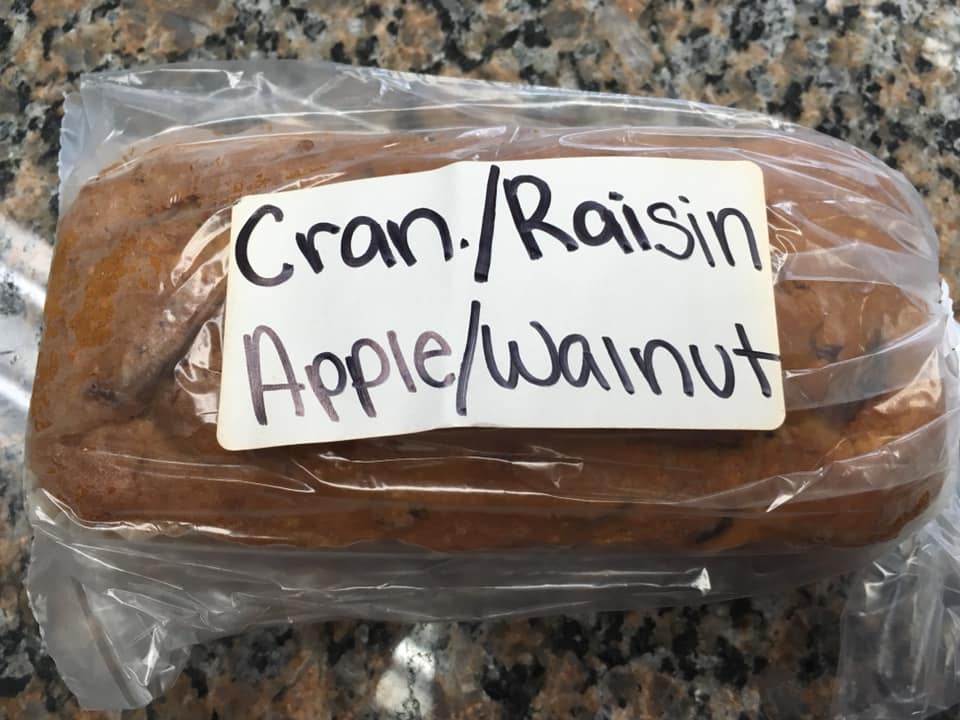 Cran./Raisin
Apple/Walnut